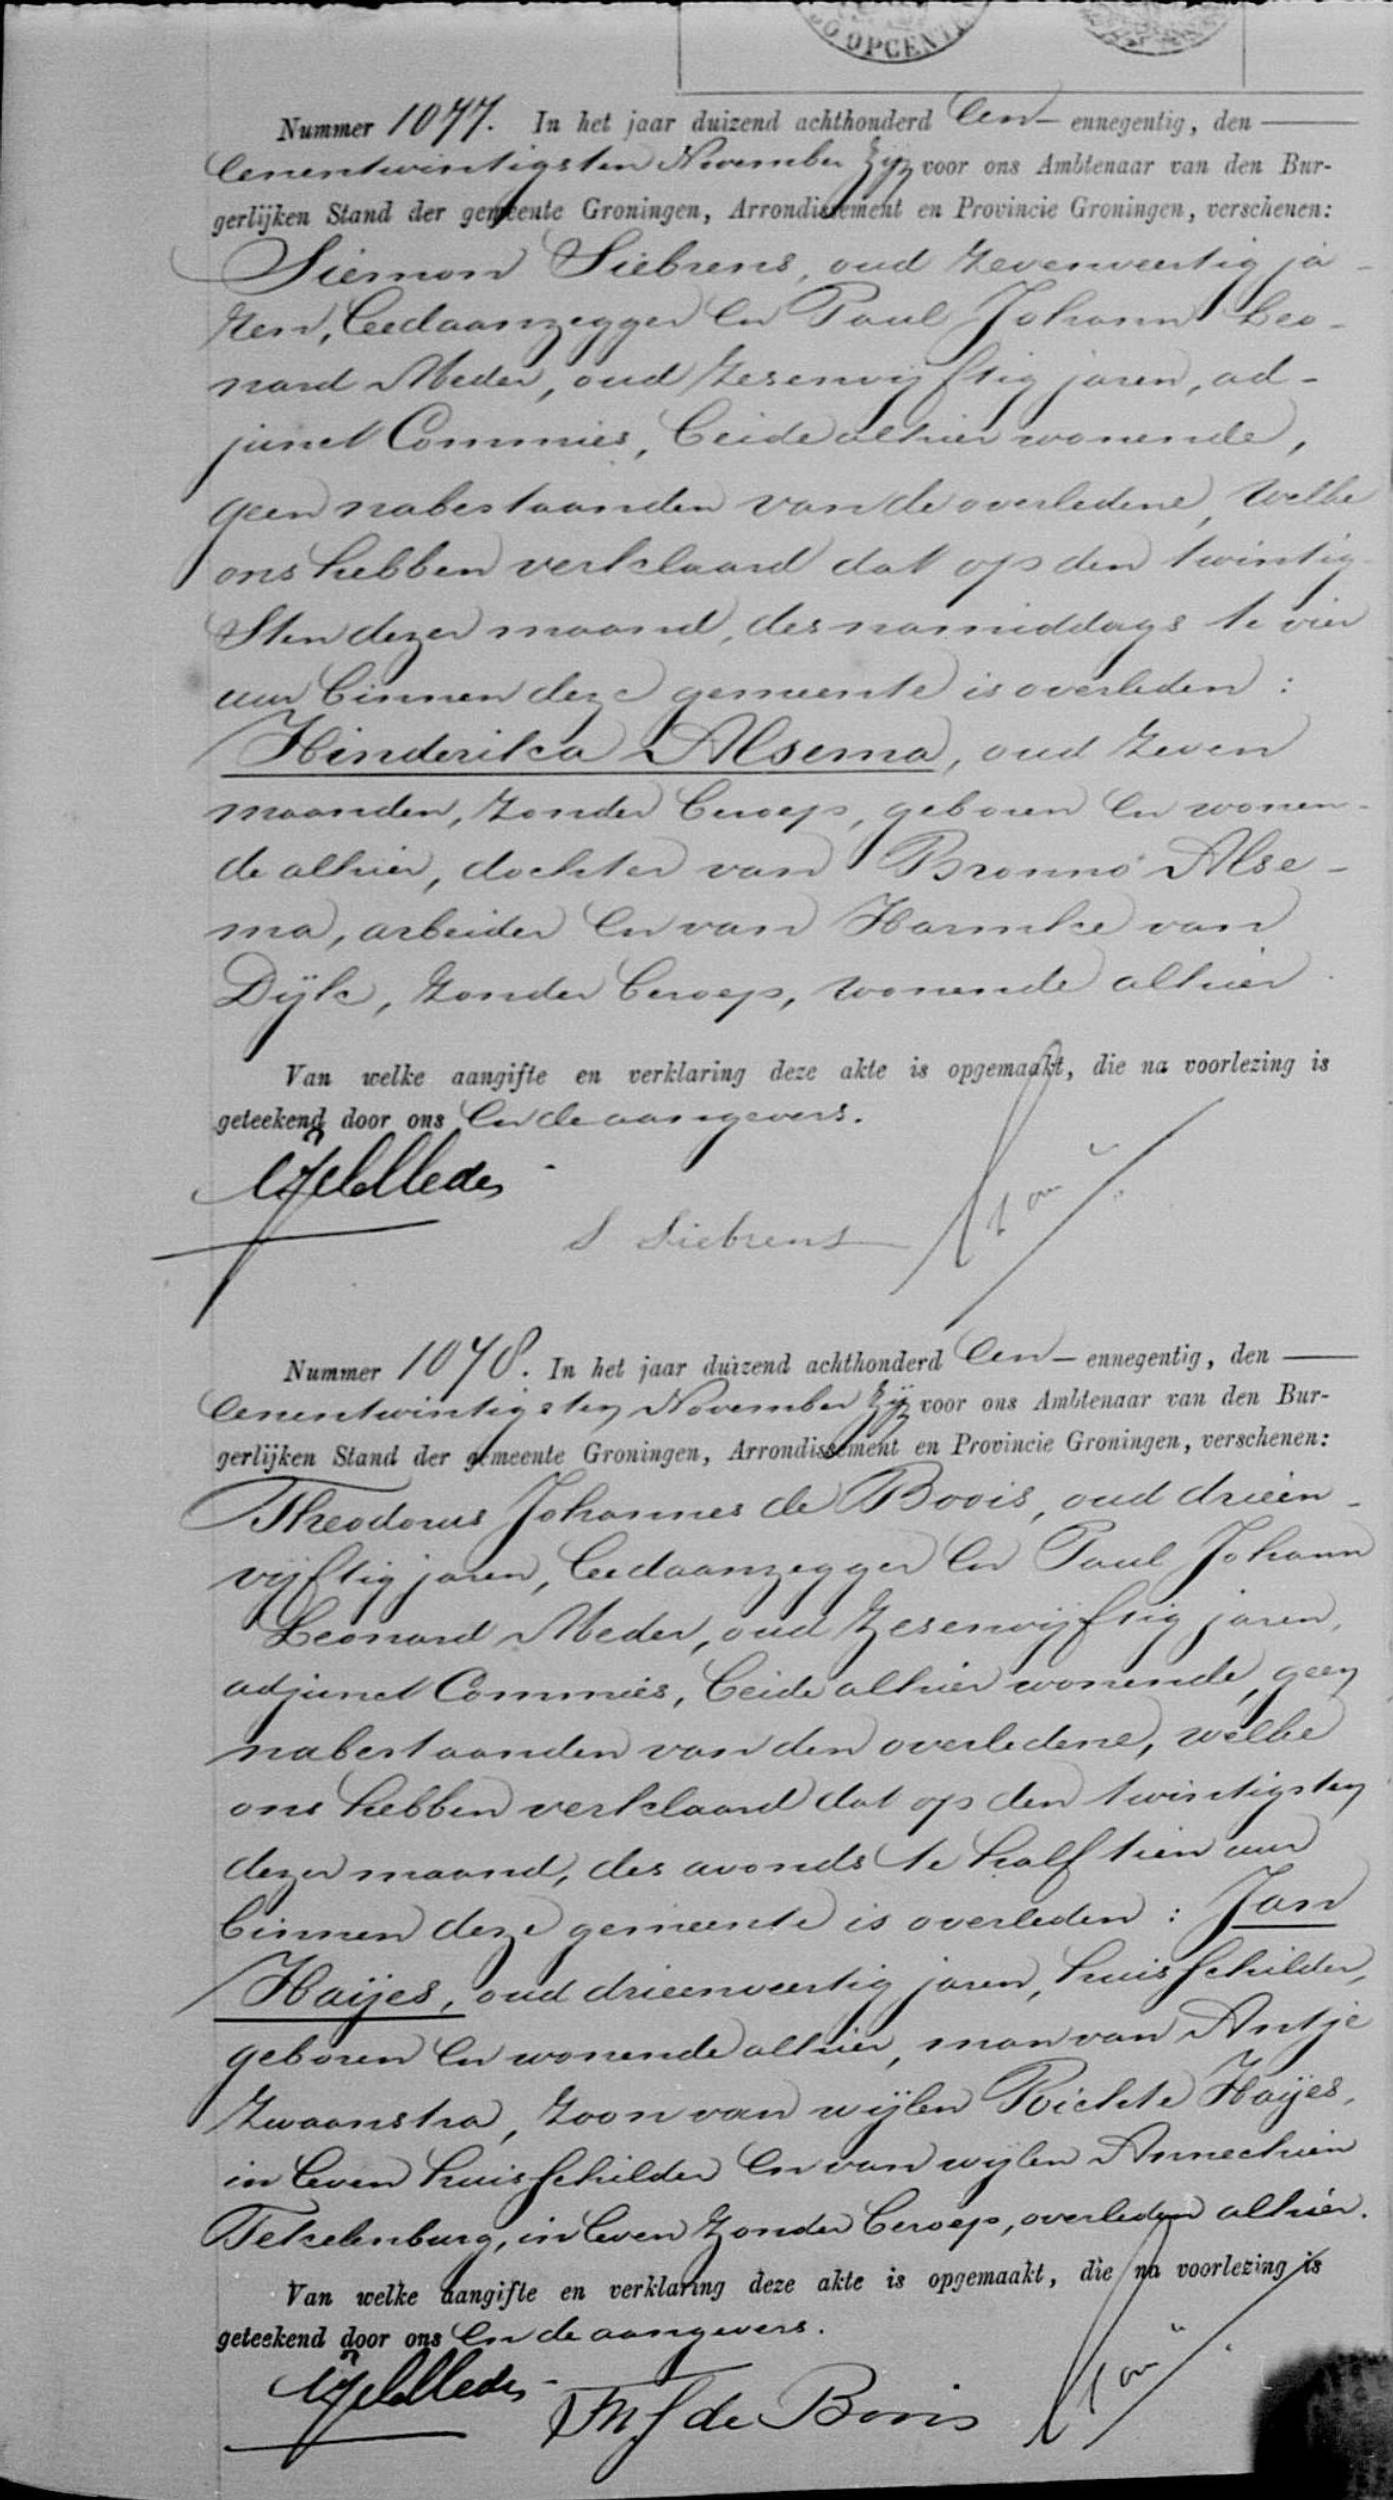 OPCEN
Nummer 1077. In het jaar duizend achthonderd Een- ennegentig, den
Eenentwintigsten November zijn voor ons Ambtenaar van den Bur-
gerlijken Stand der gemeente Groningen, Arrondissement en Provincie Groningen, verschenen:
Siemon Siebrens, oud zevenveertig ja-
ren, Leedaanzegger en Paul Johann Leo-
nard Meder, oud zesenvijftig jaren, ad-
junct Commies, beide alhier wonende,
geen nabestaanden van de overledene, welke
ons hebben verklaard dat op den twintig-
sten dezer maand, des namiddags te vier
uur binnen deze gemeente is overleden:
Hinderika Alsema, oud zeven
maanden, zonder beroep, geboren en wonen-
de alhier, dochter van Bronno Alse-
ma, arbeider en van Harmke van
Dijk, zonder beroep, wonende alhier.
Van welke aangifte en verklaring deze akte is opgemaakt, die na voorlezing is
geteekend door ons en de aangevers.
Meder
S Siebrens
Nummer 1078. In het jaar duizend achthonderd Een- ennegentig, den
Eenentwintigsten November zijn voor ons Ambtenaar van den Bur-
gerlijken Stand der gemeente Groningen, Arrondissement en Provincie Groningen, verschenen:
Theodorus Johannes de Boois, oud drieen-
vijftig jaren, Leedaanzegger en Paul Johann
Leonard Meder, oud zesenvijftig jaren,
adjunct Commies, beide alhier wonende, geen
nabestaanden van den overledene, welke
ons hebben verklaard dat op den twintigsten
dezer maand, des avonds te half tien uur
binnen deze gemeente is overleden: Jan
Haijes, oud drieenveertig jaren, huisschilder,
geboren en wonende alhier, man van Antje
Zwaanstra, zoon van wijlen Richte Haijes,
in leven huisschilder en van wijlen Annechien
Tekelenburg, in leven zonder beroep, overleden alhier.
Van welke aangifte en verklaring deze akte is opgemaakt, die na voorlezing is
geteekend door ons en de aangevers.
Meder
de Boois